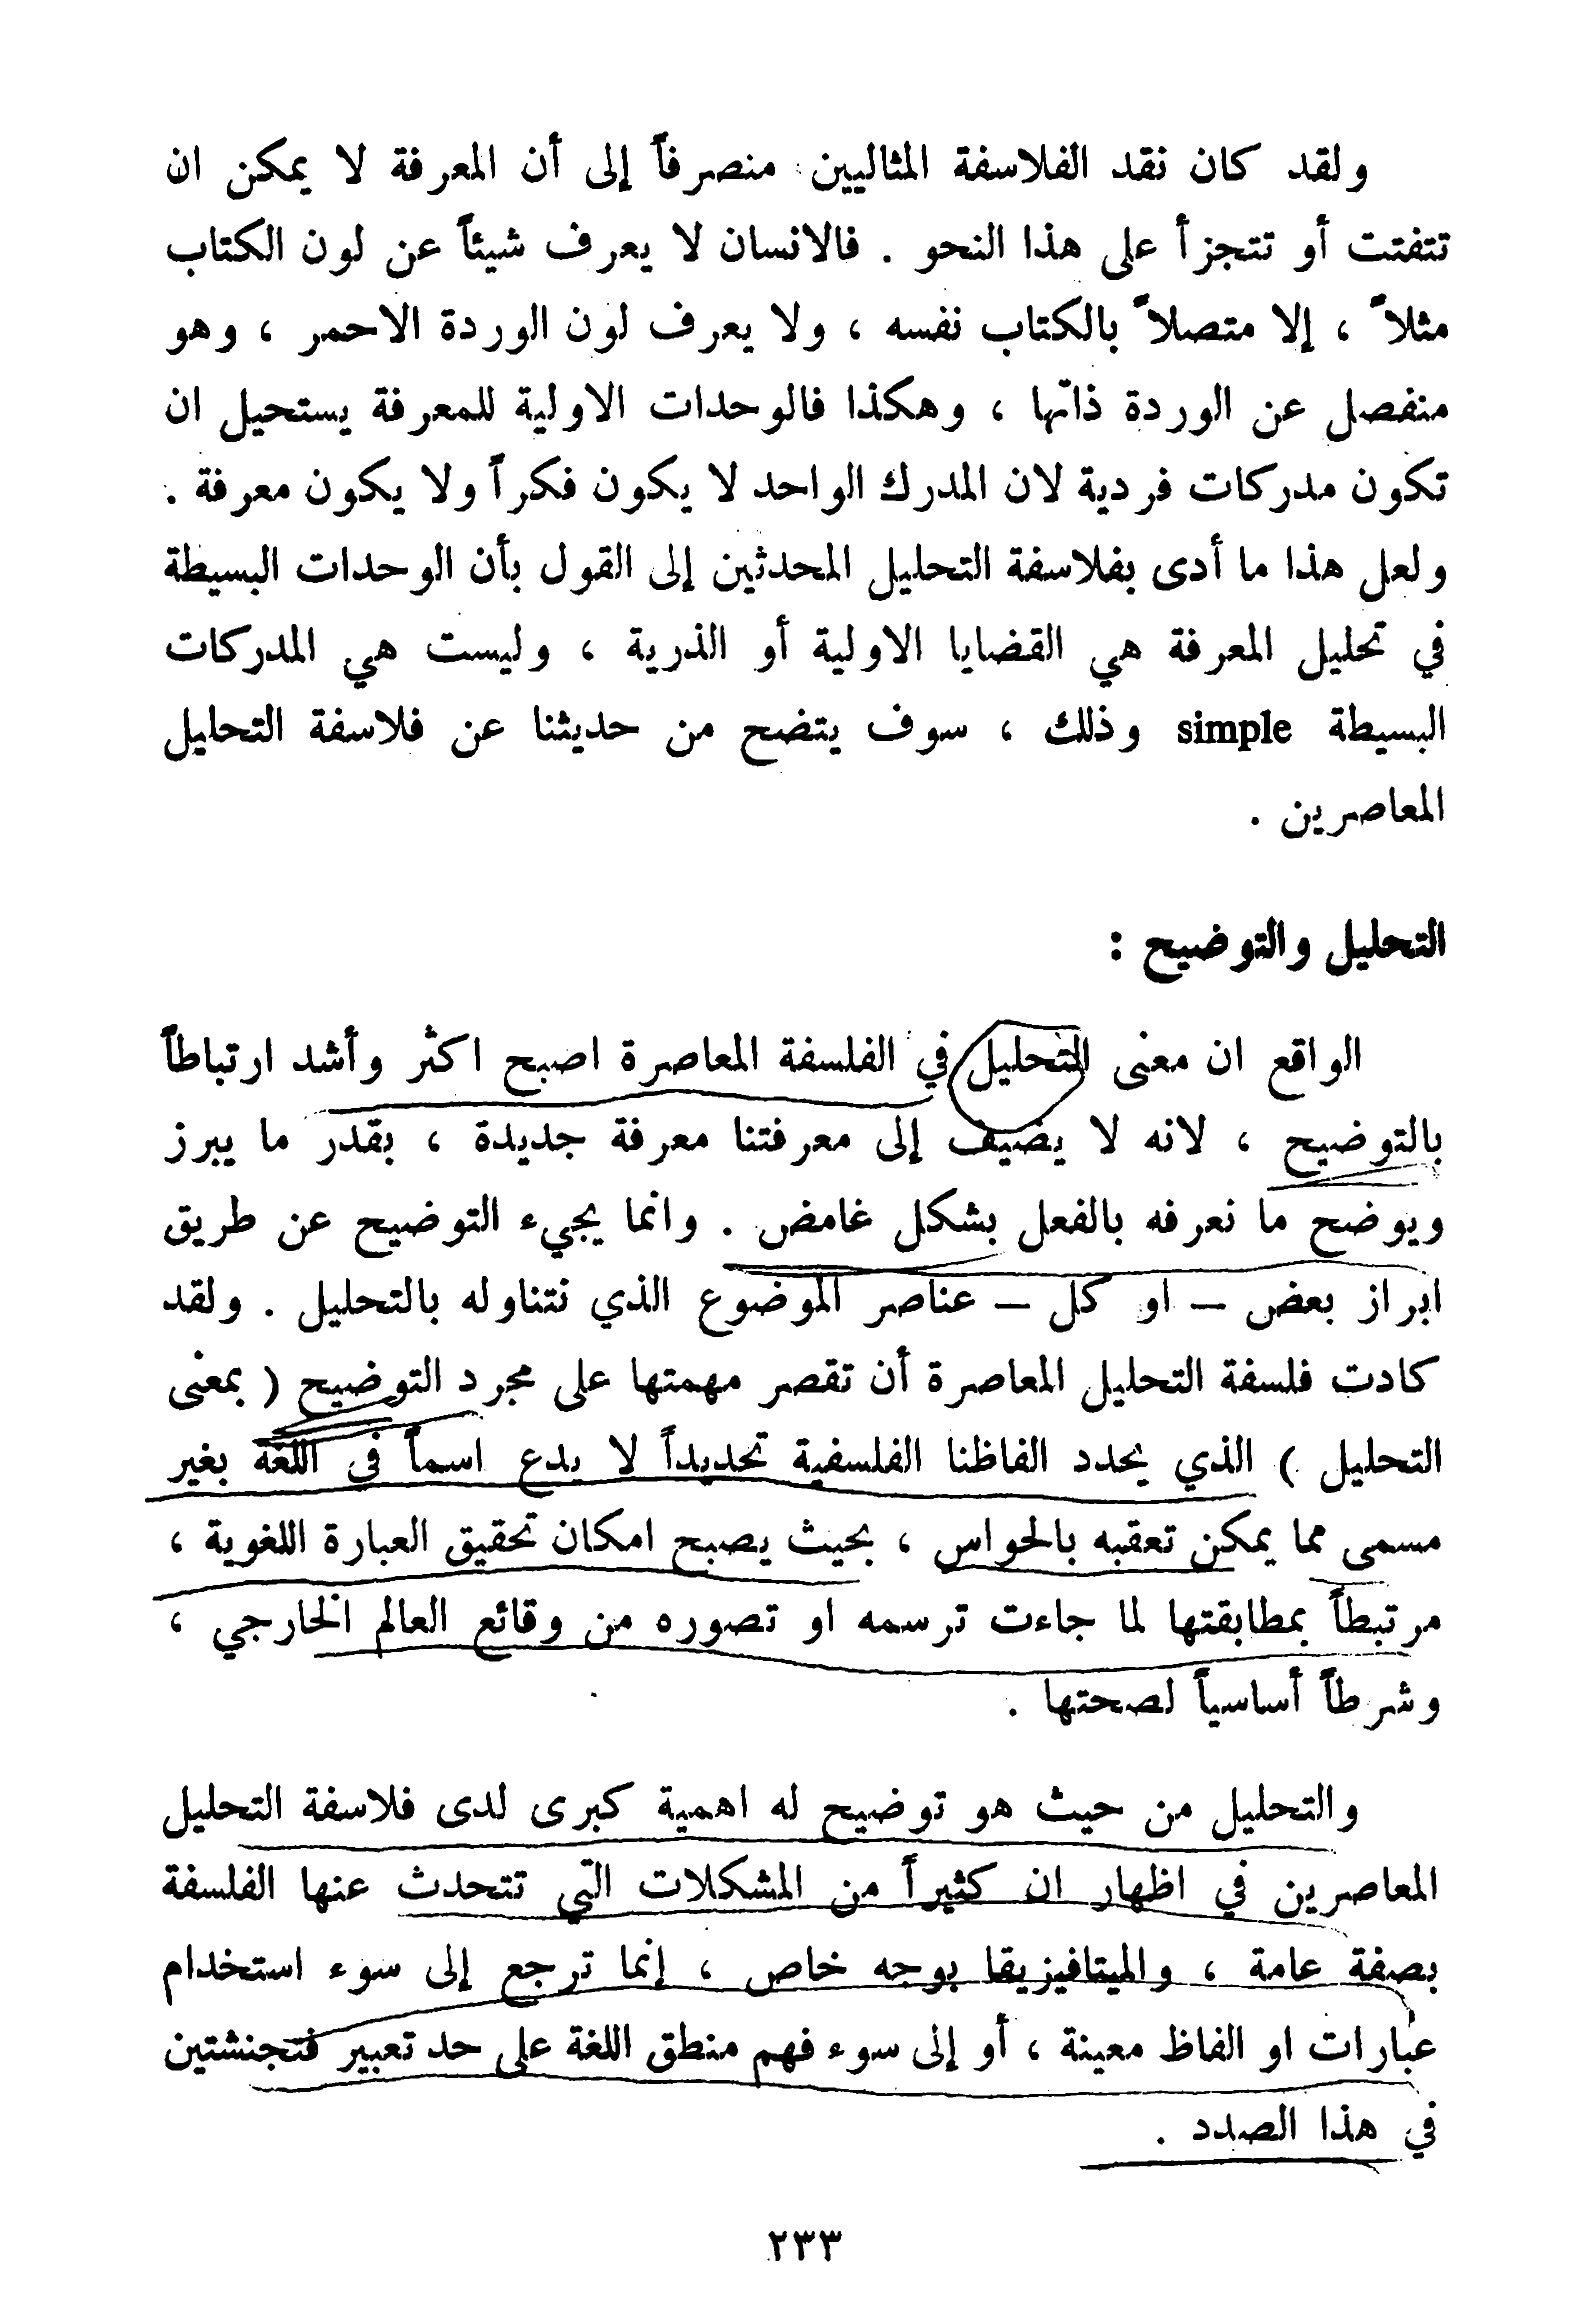 ولقد كان نقد الفلاسفة المثاليين منصرفاً إلى أن المعرفة لا يمكن ان
تتفتت أو تتجزأ على هذا النحو . فالانسان لا يعرف شيئاً عن لون الكتاب
مثلاً ، إلا متصلاً بالكتاب نفسه ، ولا يعرف لون الوردة الاحمر ، وهو
منفصل عن الوردة ذاتها ، وهكذا فالوحدات الاولية للمعرفة يستحيل ان
تكون مدركات فردية لان المدرك الواحد لا يكون فكراً ولا يكون معرفة .
ولعل هذا ما أدى بفلاسفة التحليل المحدثين إلى القول بأن الوحدات البسيطة
في تحليل المعرفة هي القضايا الاولية أو الذرية ، وليست هي المدركات
البسيطة simple وذلك ، سوف يتضح من حديثنا عن فلاسفة التحليل
المعاصرين .
التحليل والتوضيح :
الواقع ان معنى التحليل في الفلسفة المعاصرة اصبح اكثر وأشد ارتباطاً
بالتوضيح ، لانه لا يضيف إلى معرفتنا معرفة جديدة ، بقدر ما يبرز
ويوضح ما نعرفه بالفعل بشكل غامض . وانما يجيء التوضيح عن طريق
ابراز بعض – او كل – عناصر الموضوع الذي نتناوله بالتحليل . ولقد
كادت فلسفة التحليل المعاصرة أن تقصر مهمتها على مجرد التوضيح ( بمعنى
التحليل ) الذي يحدد الفاظنا الفلسفية تحديداً لا يدع اسماً في اللغة بغير
مسمى مما يمكن تعقبه بالحواس ، بحيث يصبح امكان تحقيق العبارة اللغوية ،
مرتبطاً بمطابقتها لما جاءت ترسمه او تصوره من وقائع العالم الخارجي ،
وشرطاً أساسياً لصحتها .
والتحليل من حيث هو توضيح له اهمية كبرى لدى فلاسفة التحليل
المعاصرين في اظهار ان كثيراً من المشكلات التي تتحدث عنها الفلسفة
بصفة عامة ، والميتافيزيقا بوجه خاص ، إنما ترجع إلى سوء استخدام
عبارات او الفاظ معينة ، أو إلى سوء فهم منطق اللغة على حد تعبير فتجنشتين
في هذا الصدد .
٢٣٣